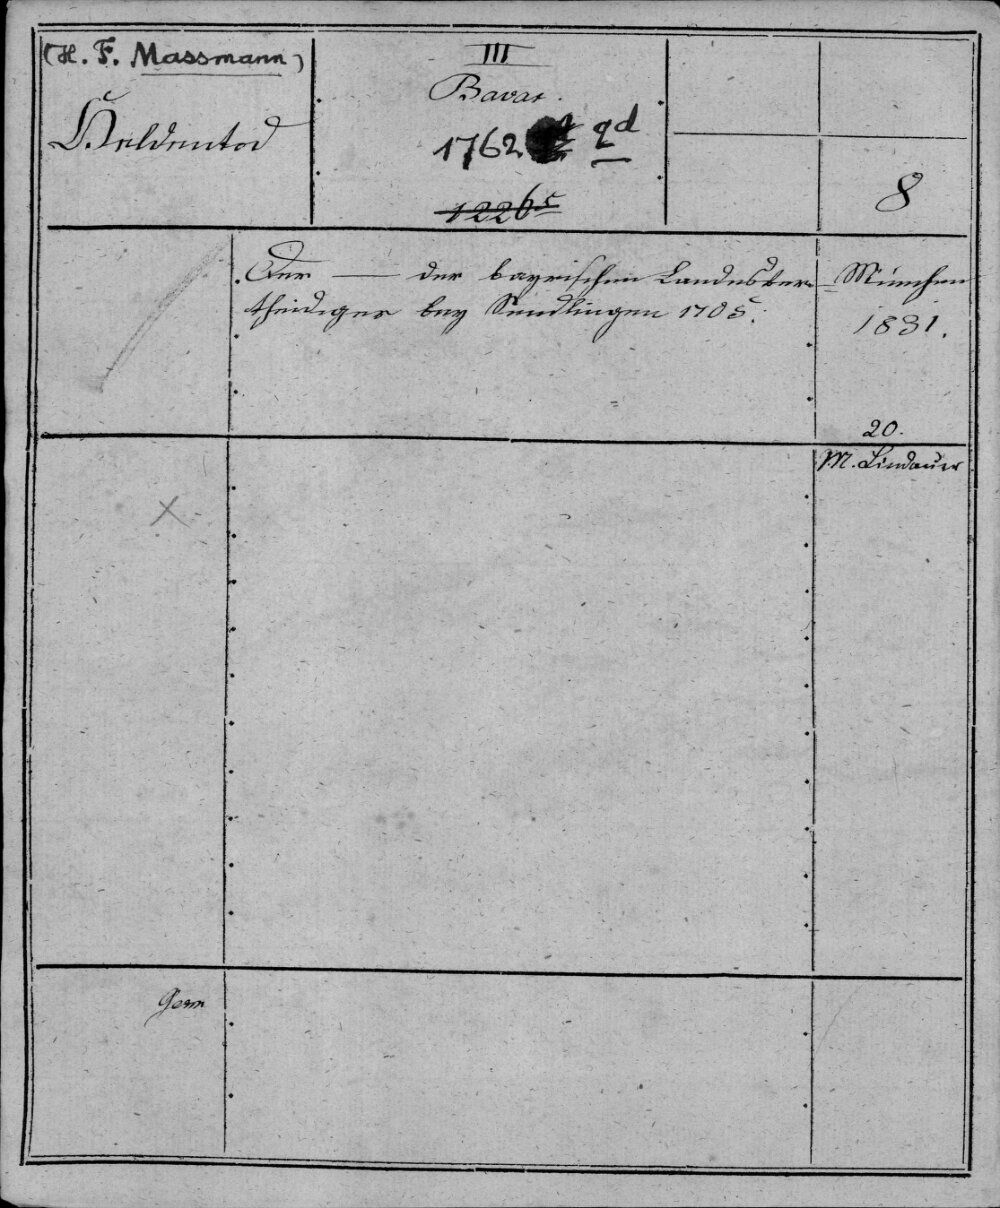 (H. F. Massmann)
Heldentod
III
Bavar.
1762 qd
1226 s
8
Der — der bayrischen Landesver-
theidiger bey Sendlingen 1705.
München
1831.
20.
M. Lindauer
Germ